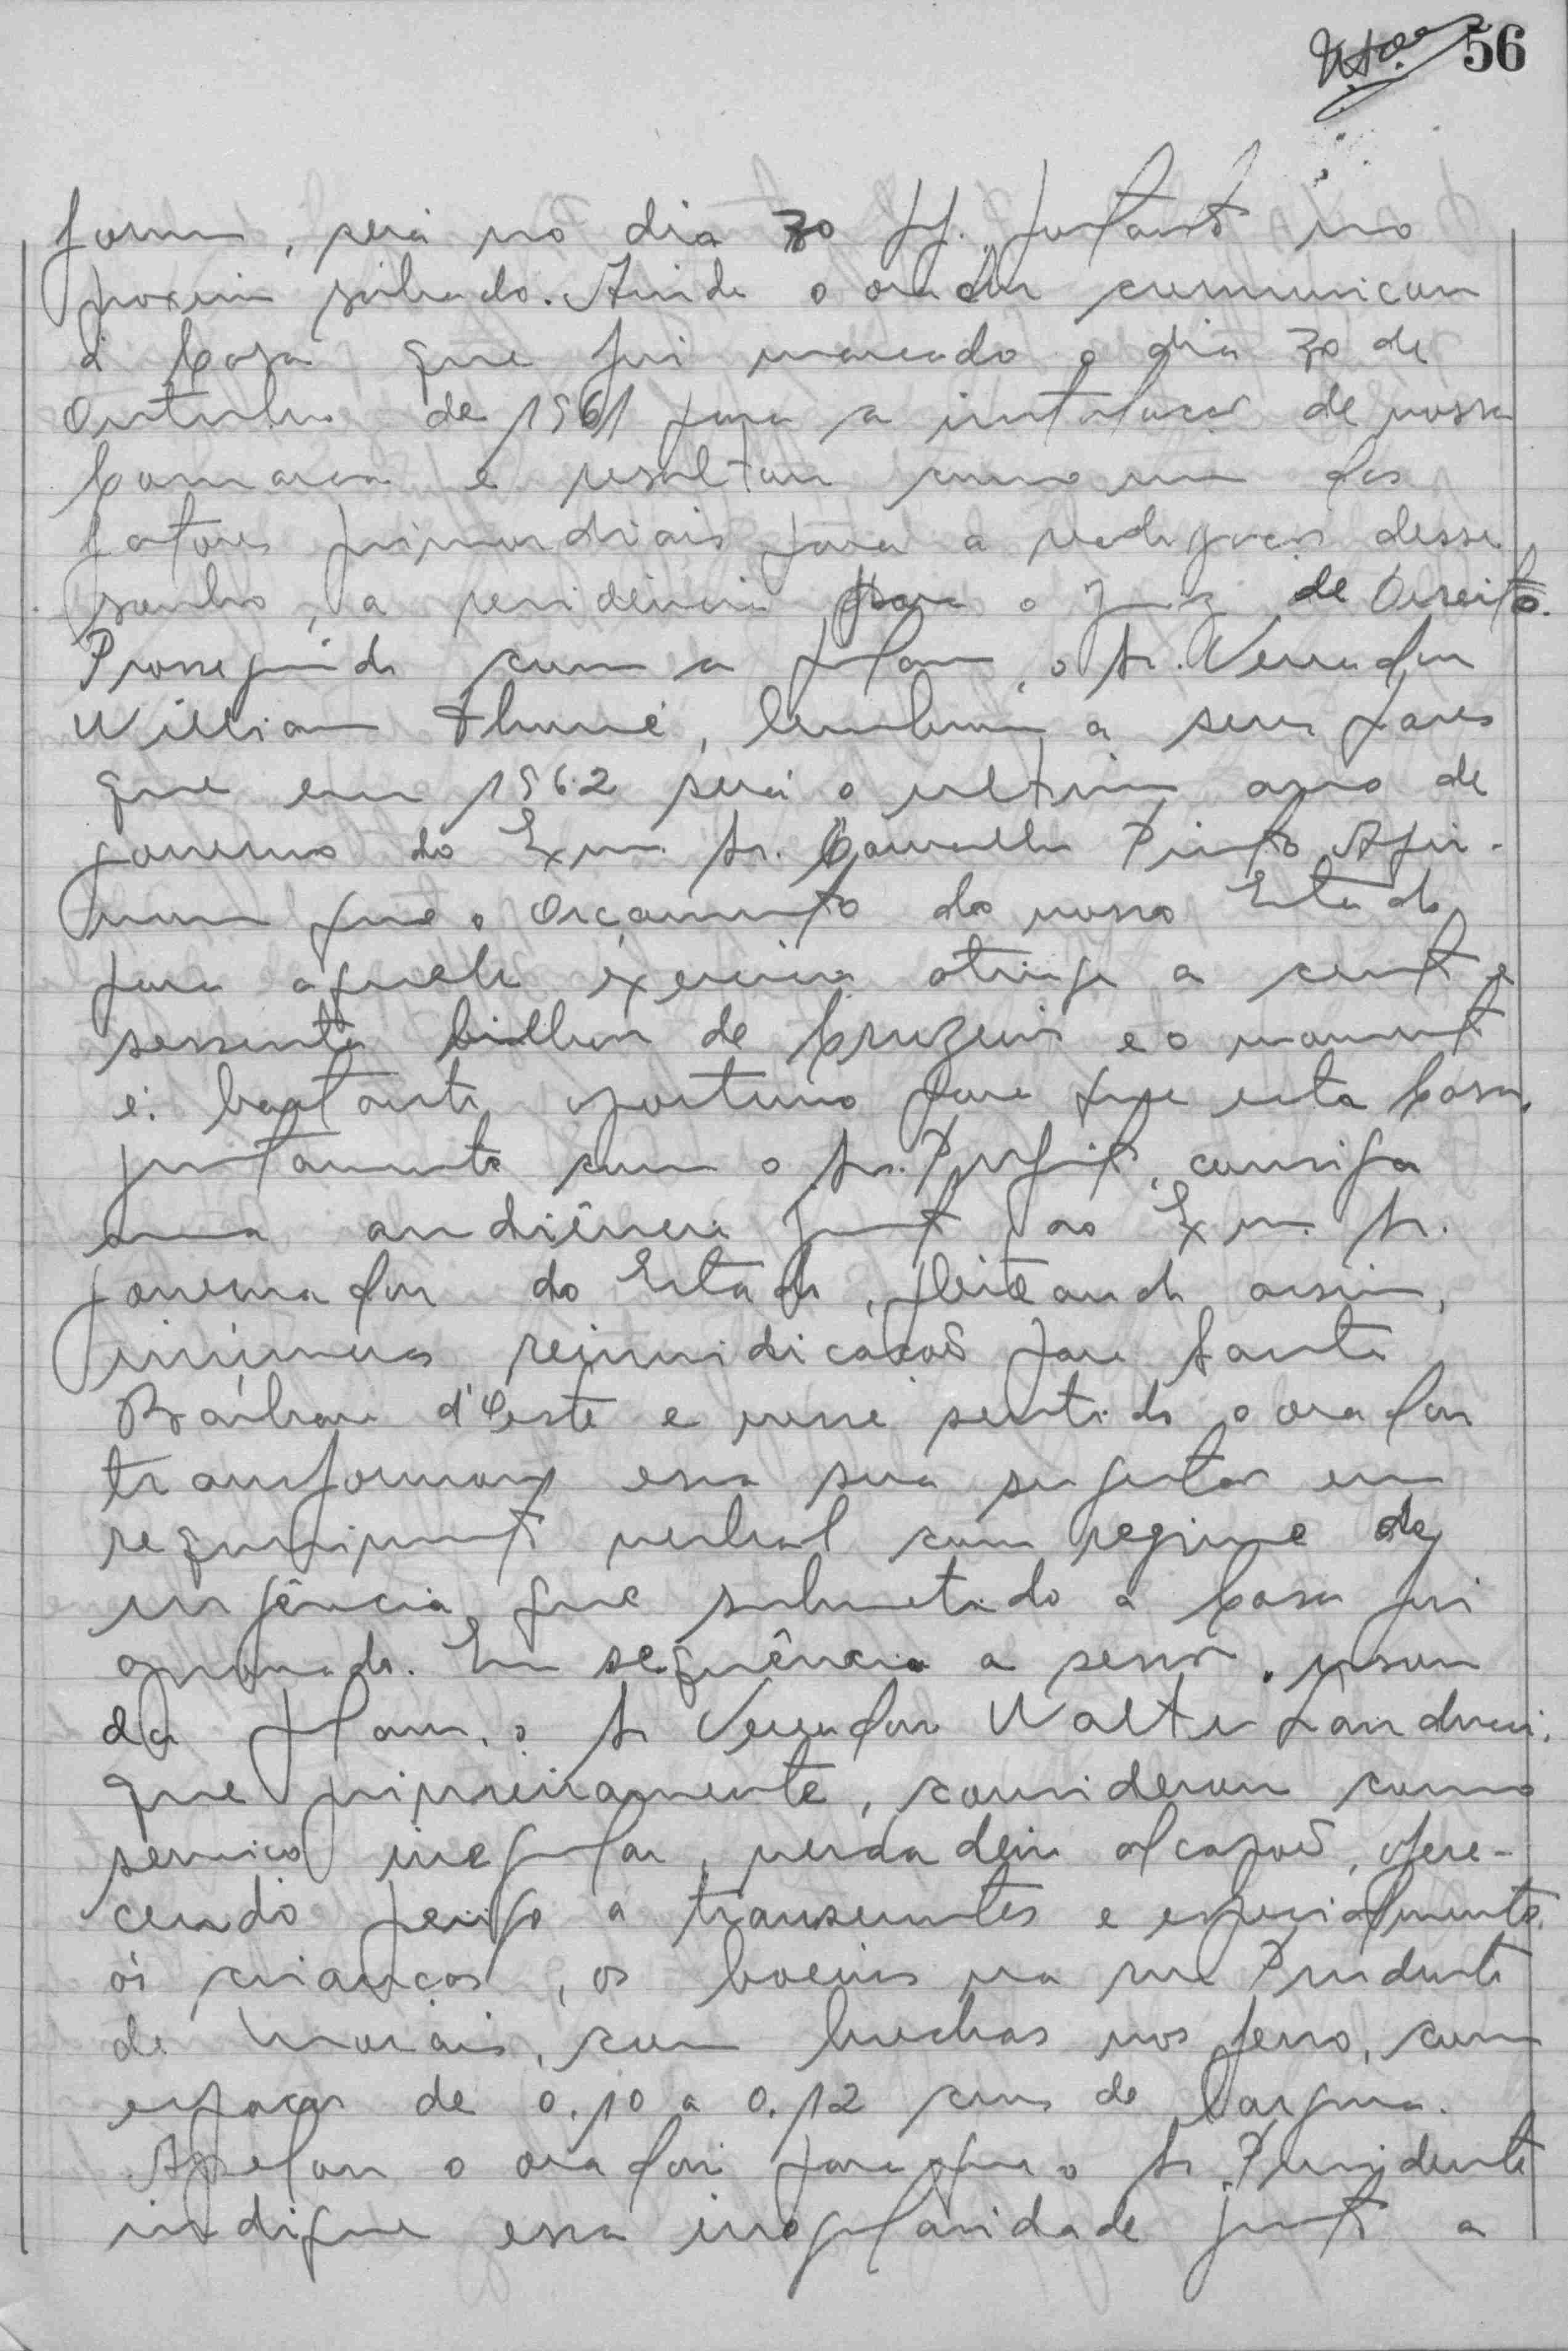 56
forma, será no dia 30 pp. portanto no
proximo sabado. Ainda o orador comunicou
á Casa que foi marcado o dia 30 de
Outubro de 1961 para a instalação de nossa
Comarca e resaltou como um dos
fatores primordiais para a realização desse
sonho, a residência para o Juiz de Direito.
Prosseguindo com a palavra, o Sr. Vereador
William Thomé, lembrou a seus pares
que em 1962 será o ultimo ano de
governo do Exmo. Sr. Carvalho Pinto. Afir-
mou que o Orçamento do nosso Estado
para aquele exercicio atinge a cento e
sessenta bilhões de Cruzeiros e o momento
é bastante oportuno para que esta Casa,
juntamente com o Sr. Prefeito, consiga
uma audiência junto ao Exmo. Sr.
governador do Estado, pleiteando assim,
inúmeras reinvidicações para Santa
Bárbara d'Oeste e nesse sentido o orador
transformou essa sua sugestão em
requerimento verbal com regime de
urgência, que submetido a Casa foi
aprovado. Em sequência a sessão, usou
da palavra, o Sr Vereador Walter Landucci,
que primeiramente, considerou como
serviço iregular, verdadeiro alcapões, ofere-
cendo perigo a transeuntes e especialmente
ás crianças, os boeiros na rua Prudente
de Morais, com brechas nos ferro, com
espaços de 0.10 a 0.12 cms de largura.
Apelou o orador para que o Sr. Presidente
indique essa iregularidade junto a